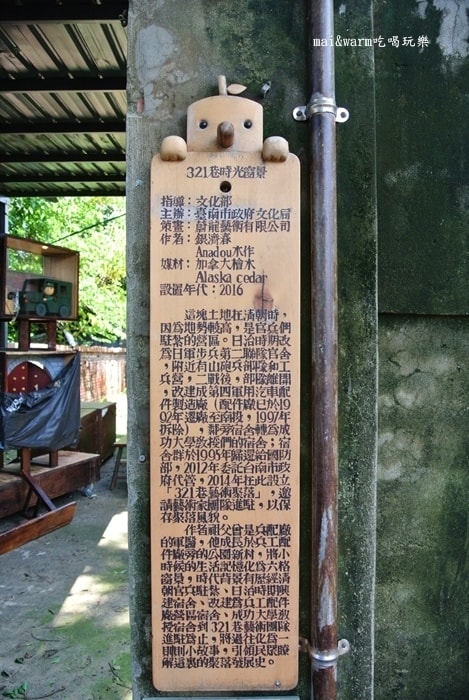 mai&warm吃喝玩樂
321巷時光窗景
指導：文化部
主辦：臺南市政府文化局
策畫：蔚龍藝術有限公司
作者：銀濟春
Anadou木作
媒材：加拿大檜木
Alaska cedar
設置年代：2016
這塊土地在清朝時，
因為地勢較高，是官兵們
駐紮的營區。日治時期改
為日軍步兵第二聯隊官舍
，附近有山砲兵部隊和工
兵營，二戰後，部隊離開
，改建成第四軍用汽車配
件製造廠（配件廠已於19
92年遷廠至南投，1997年
拆除），鄰旁宿舍轉為成
功大學教授們的宿舍；宿
舍群於1998年歸還給國防
部，2012年委託台南市政
府代管，2014年在此設立
「321巷藝術聚落」，邀
請藝術家團隊進駐，以保
存聚落風貌。
作者祖父曾是兵配廠
的軍醫，他成長於兵工配
件廠旁的公園新村，將小
時候的生活記憶化為六格
窗景，時代背景有歷經清
朝官兵駐紮、日治時期興
建宿舍、改建為兵工配件
廠營區宿舍、成功大學教
授宿舍到321巷藝術團隊
進駐為止，將過往化為一
則則小故事，引領民眾瞭
解這裏的聚落發展史。